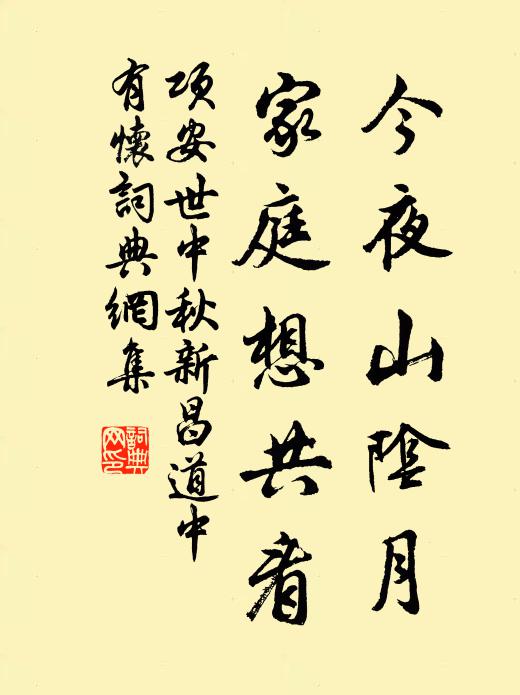 今夜山陰月
家庭想共看
項安世中秋新昌道中
有懷詞典網集
詞典
网印